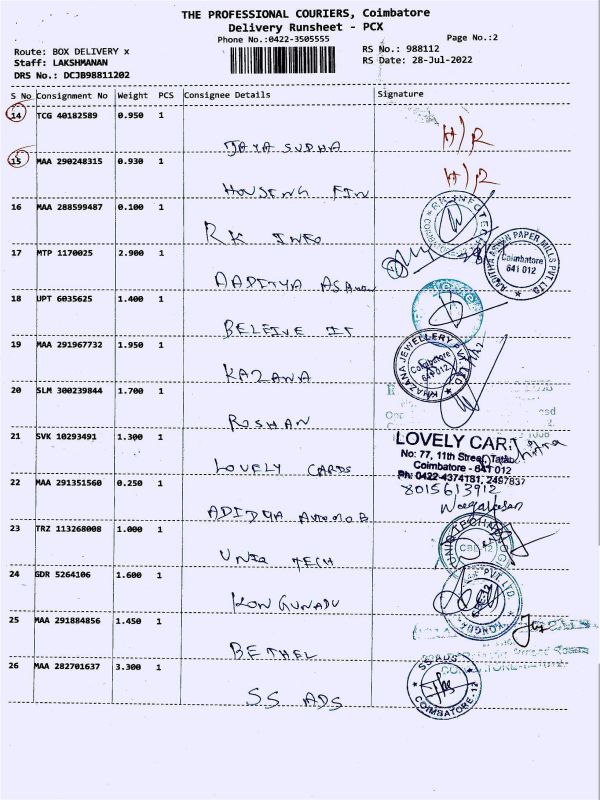 THE PROFESSIONAL COURIERS, Coimbatore
Delivery Runsheet - PCX
Phone No.:0422-3505555
Page No.:2
Route: BOX DELIVERY x
RS No.: 988112
Staff: LAKSHMANAN
RS Date: 28-Jul-2022
DRS No.: DCJB98811202
S No Consignment No Weight PCS Consignee Details Signature
14 TCG 40182589 0.950 1
JAYA SUDHA H/R
15 MAA 290248315 0.930 1
HOUSENG FIN H/R
16 MAA 288599487 0.100 1
RK INFO
RK INFOTEC
17 MTP 1170025 2.900 1
AADITYA
PAPER MILLS PVT LTD.
Coimbatore
641 012
18 UPT 6035625 1.400 1
BELEIVE IT
19 MAA 291967732 1.950 1
KAZANA
KHAZANA JEWELLERY PVT. LTD
Coimbatore
641 012
20 SLM 300239844 1.700 1
ROSHAN
21 SVK 10293491 1.300 1
LOVELY CARDS
LOVELY CAR
No: 77, 11th Street, Tatabad
Coimbatore - 641 012
Ph: 0422-4374181, 2497837
22 MAA 291351560 0.250 1
8015613912
ADITYA AUTOMOB
23 TRZ 113268008 1.000 1
UNIQ TECH
CBE-12
24 GDR 5264106 1.600 1
KONGUNADU
PVT LTD
25 MAA 291884856 1.450 1
BETHEL
26 MAA 282701637 3.300 1
SS ADS
SS ADS
COIMBATORE-12